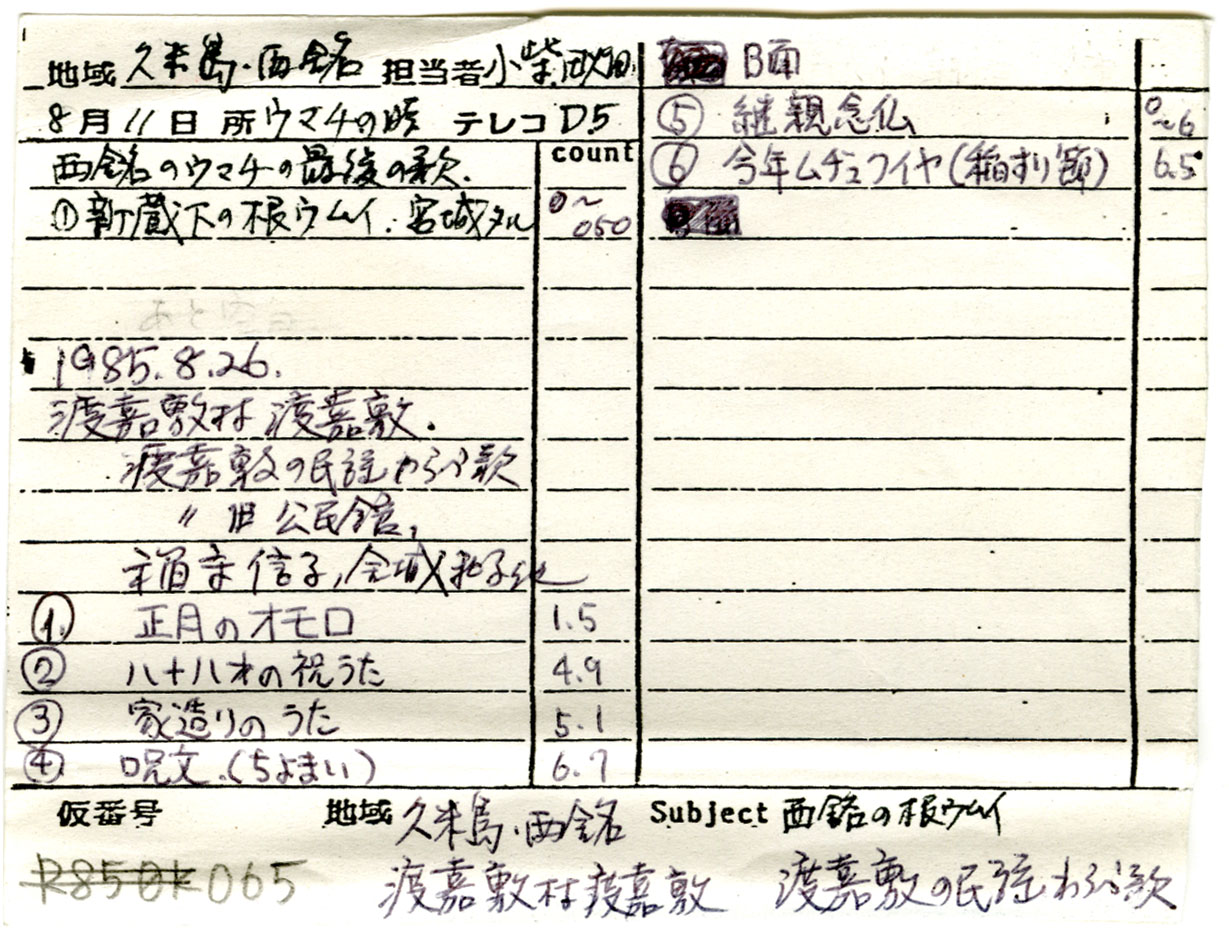 地域 久米島・西銘 担当者 小柴
8月11日 所 ウマチの時 テレコ D5
count
西銘のウマチの最後の歌.
①新蔵下の根ウムイ.宮城タル 0～050
あと空
1985.8.26.
渡嘉敷村 渡嘉敷.
渡嘉敷の民謡わらべ歌
〃 旧公民館,
信子, 金城 和子他
① 正月のオモロ 1.5
② 八十八才の祝うた 4.9
③ 家造りのうた 5.1
④ 呪文.(ちよまい) 6.7
B面
⑤ 継親念仏 0～6
⑥ 今年ムチュフイヤ(稲すり節) 6.5
仮番号 地域 久米島・西銘 Subject 西銘の根ウムイ
R850K065 渡嘉敷村渡嘉敷 渡嘉敷の民謡わらべ歌